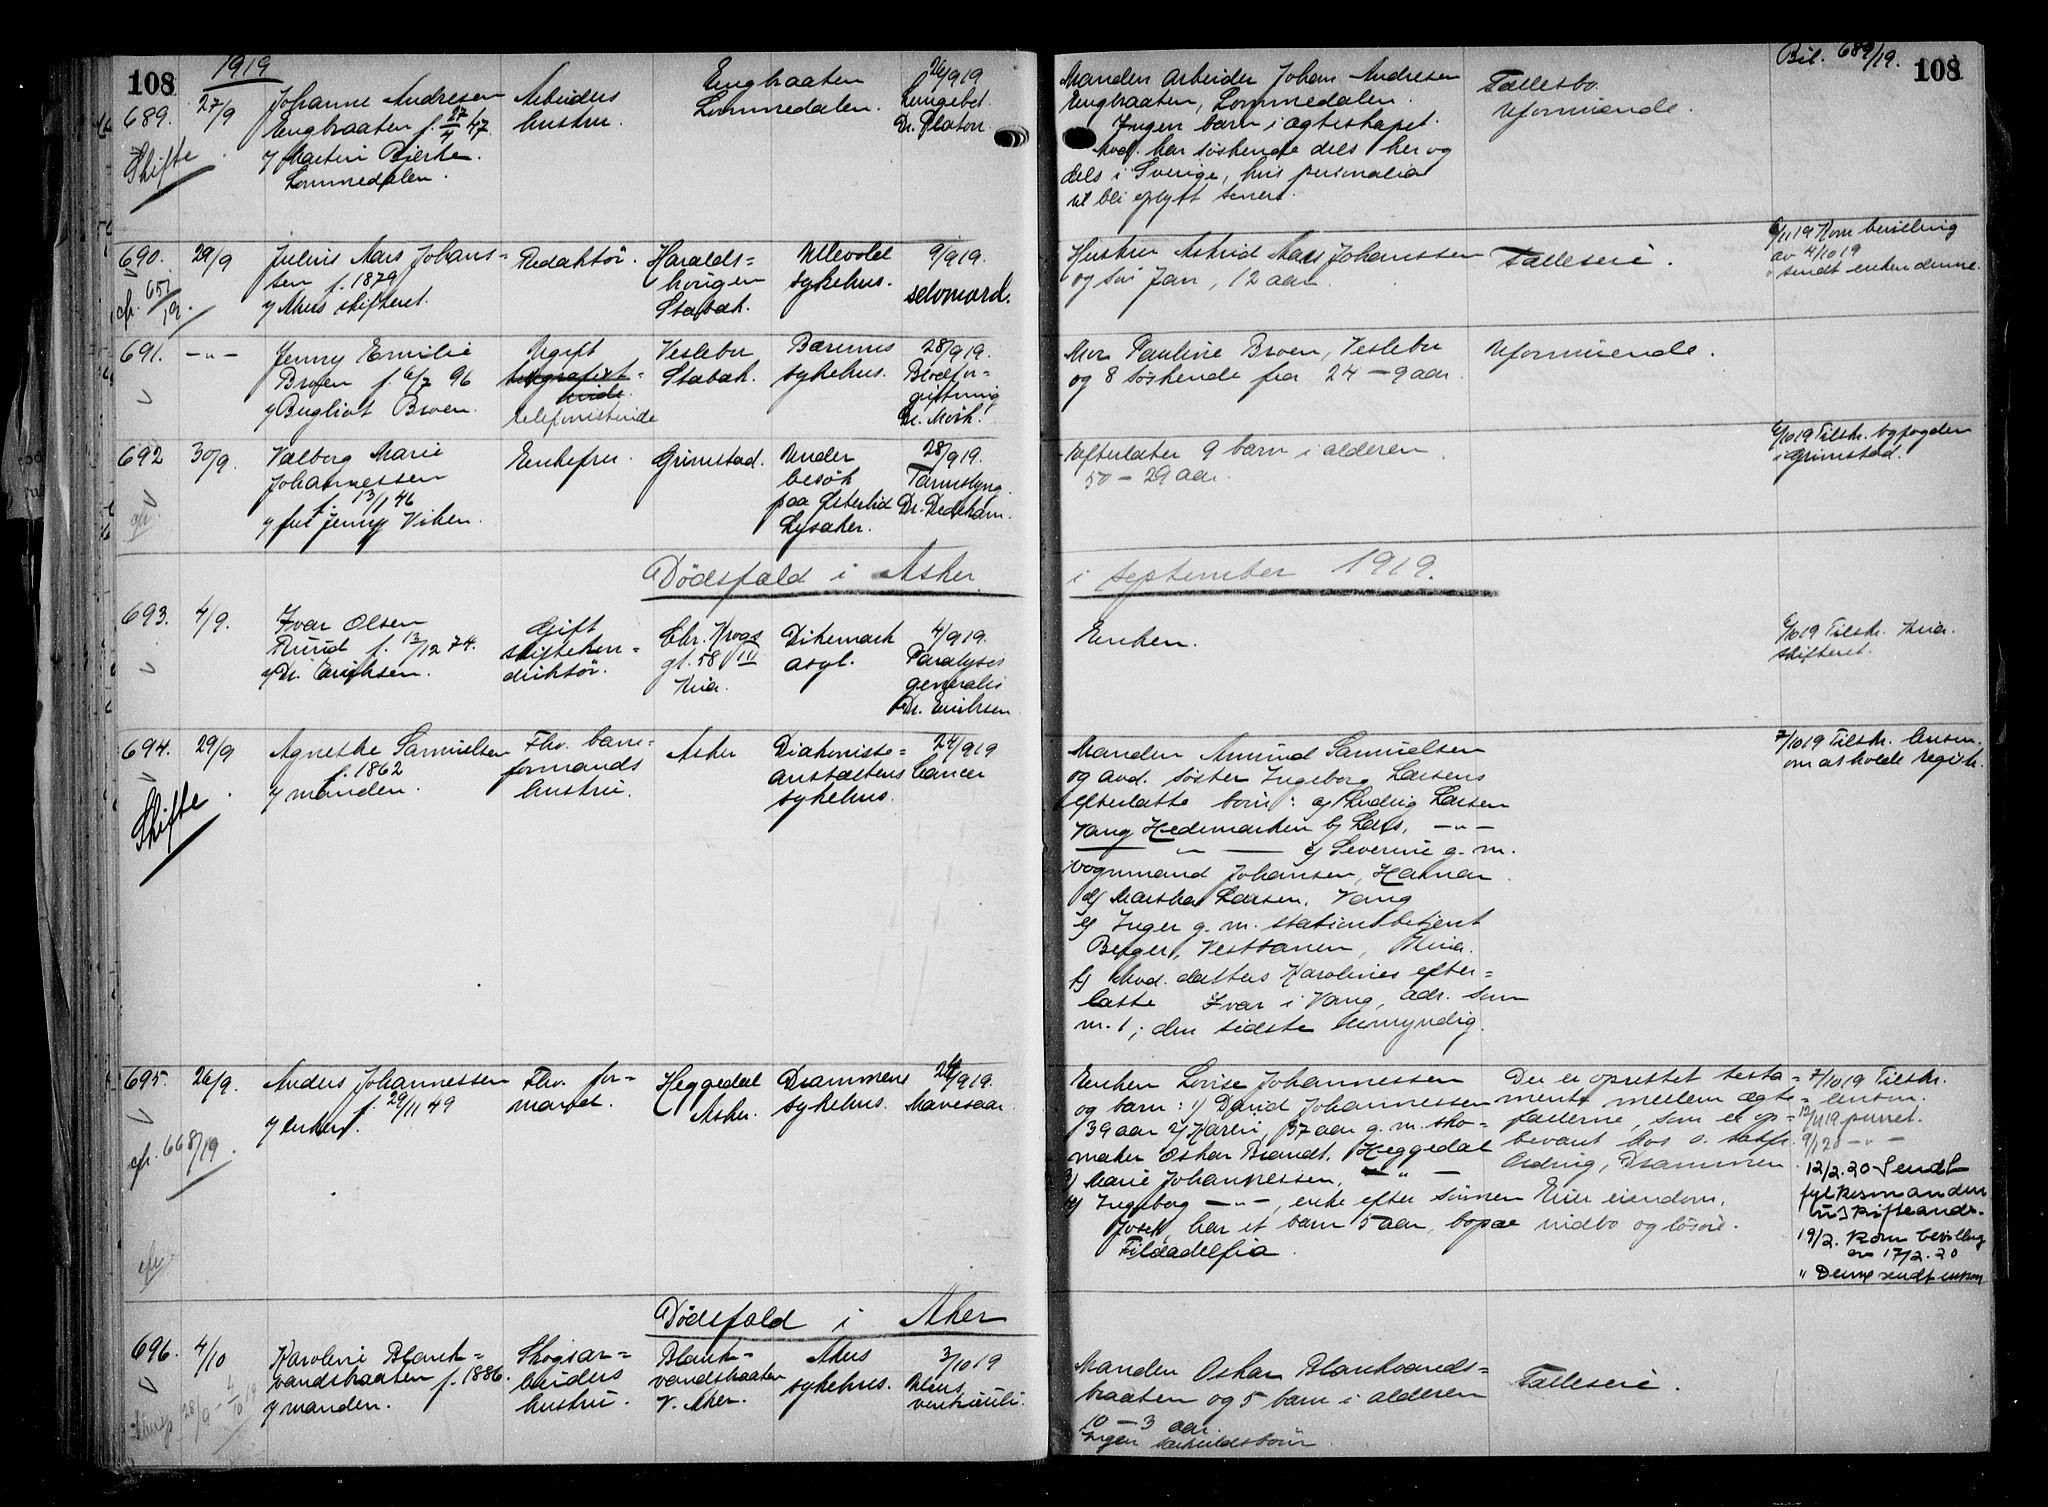 108
1919
689.
27/9
Johanne Andresen
Engbraaten f. 27/4 47.
v/ Martin Bjerke.
Lommedalen.
Skifte
Arbeiders
hustru.
Engbraaten
Lommedalen.
26/9 19
Lungebet.
Dr. Platou.
690.
29/9
cfr. 651/19.
Julius Aars Johans=
sen f. 1879
v/ Akers skifteret.
Redaktør.
Haralds=
Stabæk.
Ullevold
sykehus.
9/9 19.
selvmord.
691.
-"-
Jenny Emilie
Broen f. 6/7 96
v/ Broen.
Ugift
telegrafist=
inde.
telefonistinde
Veslebo
Stabæk.
Bærums
sykehus.
28/9 19.
Blodfor=
giftning
Dr. Mørk.
692
30/9.
Valborg Marie
Johannessen
f. 13/1 46
v/ fru Jenny Viken.
Enkefru.
Grimstad.
Under
besøk
paa Østerlid
Lysaker.
28/9 19.
Tarmslyng.
Dr. Dedekam.
Dødsfald i Asker
693.
4/9.
Ivar Olsen
Ruud f. 13/12 74.
v/ Dr. Eriksen.
Gift
skifteken=
duktør.
Chr. Krogs
gt. 58 IV
Kria.
Dikemark
asyl.
4/9 19.
Paralysis
generalis
Dr. Eriksen
694.
29/9
Skifte
Agnethe Samuelsen
f. 1862
v/ manden.
Fhv. bane=
formands
hustru.
Asker
Diakonisse=
anstaltens
sykehus.
24/9 19
Cancer
695.
26/9.
cfr. 668/19.
Anders Johannessen
f. 29/11 49
v/ enken.
Fhv. for=
mand.
Heggedal
Asker.
Drammens
sykehus.
24/9 19.
Mavesaar.
cfr
Dødsfald i Aker
696.
4/10
28/9 - 4/10 19
Karoline Blank=
vandsbraaten f. 1886.
v/ manden.
Skogsar=
beiders
hustru.
Blank=
vandsbraaten
V. Aker.
Akers
sykehus.
3/10 19
Ulcus
ventriculi.
Bil. 689/19.
108
Manden arbeider Johan Andresen
Engbraaten, Lommedalen.
Ingen barn i ægteskapet.
Avd. har søskende dels her og
dels i Sverige, hvis personalia
vil bli oplyst senere.
Fællesbo.
Uformuende.
Hustru Astrid Aars Johanssen
og søn Jan, 12 aar.
Fælleseie.
6/11 19 Kom bevilling
av 4/10 19
" sendt enken denne.
Mor Pauline Broen, Veslebo
og 8 søskende fra 24 - 9 aar.
Uformuende.
Efterlater 9 barn i alderen
50 - 29 aar.
6/10 19 Tilskr. byfogden
i Grimstad.
i september 1919.
Enken.
6/10 19 Tilskr. Kria.
skifteret.
Manden Amund Samuelsen
og avd. søster Ingeborg Larsens
efterlatte børn: a) Ludvig Larsen
Vang Hedemarken b) Lars, -"-
-"- c) Severine g. m.
vognmand Johansen, Hamar
d) Martha Larsen, Vang
e) Inger g. m. stationsbetjent
Berger, Vestbanen, Kria.
f) Avd. datters Karolines efter=
latte Ivar i Vang, adr. som
nr. 1, den sidste umyndig.
7/10 19 Tilskr. lensm.
om at holde registr.
Enken Lovise Johannessen
og barn: 1) David Johannessen
39 aar 2) Karen, 37 aar g. m. sko=
maker Oskar Brandt, Heggedal
3) Marie Johannessen, -"-
4) Ingeborg -"-, enke efter sønnen
Josef, har et barn 5 aar, bopæl
Filadelfia.
Der er oprettet testa=
mente mellem ægte=
fællerne, som er op=
bevart hos o. r. sakf.
Ording, Drammen.
Eier eiendom,
indbo og løsøre.
7/10 19 Tilskr.
lensm.
12/11 19 purret.
9/1 20 -"-
12/2.20 Sendt
fylkesmanden
u. skifteande.
19/2. Kom bevilling
av 17/2.20
" Denne sendt enken
Manden Oskar Blankvands=
braaten og 5 barn i alderen
10 - 3 aar.
Ingen særkuldsbørn.
Fælleseie.